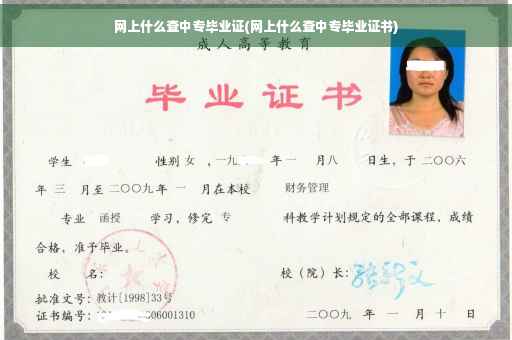 网上什么查中专毕业证(网上什么查中专毕业证书)
成人高等教育
毕业证书
学生 性别 女 ，一九 年 一 月八 日生，于 二〇〇六
年 三 月至 二〇〇九 年 一 月在本校 财务管理
专业 函授 学习，修完 专 科教学计划规定的全部课程，成绩
合格，准予毕业。
校 名：
校（院）长：
批准文号：教计[1998]33号
证书编号： 06001310
二〇〇九 年 一 月 十 日